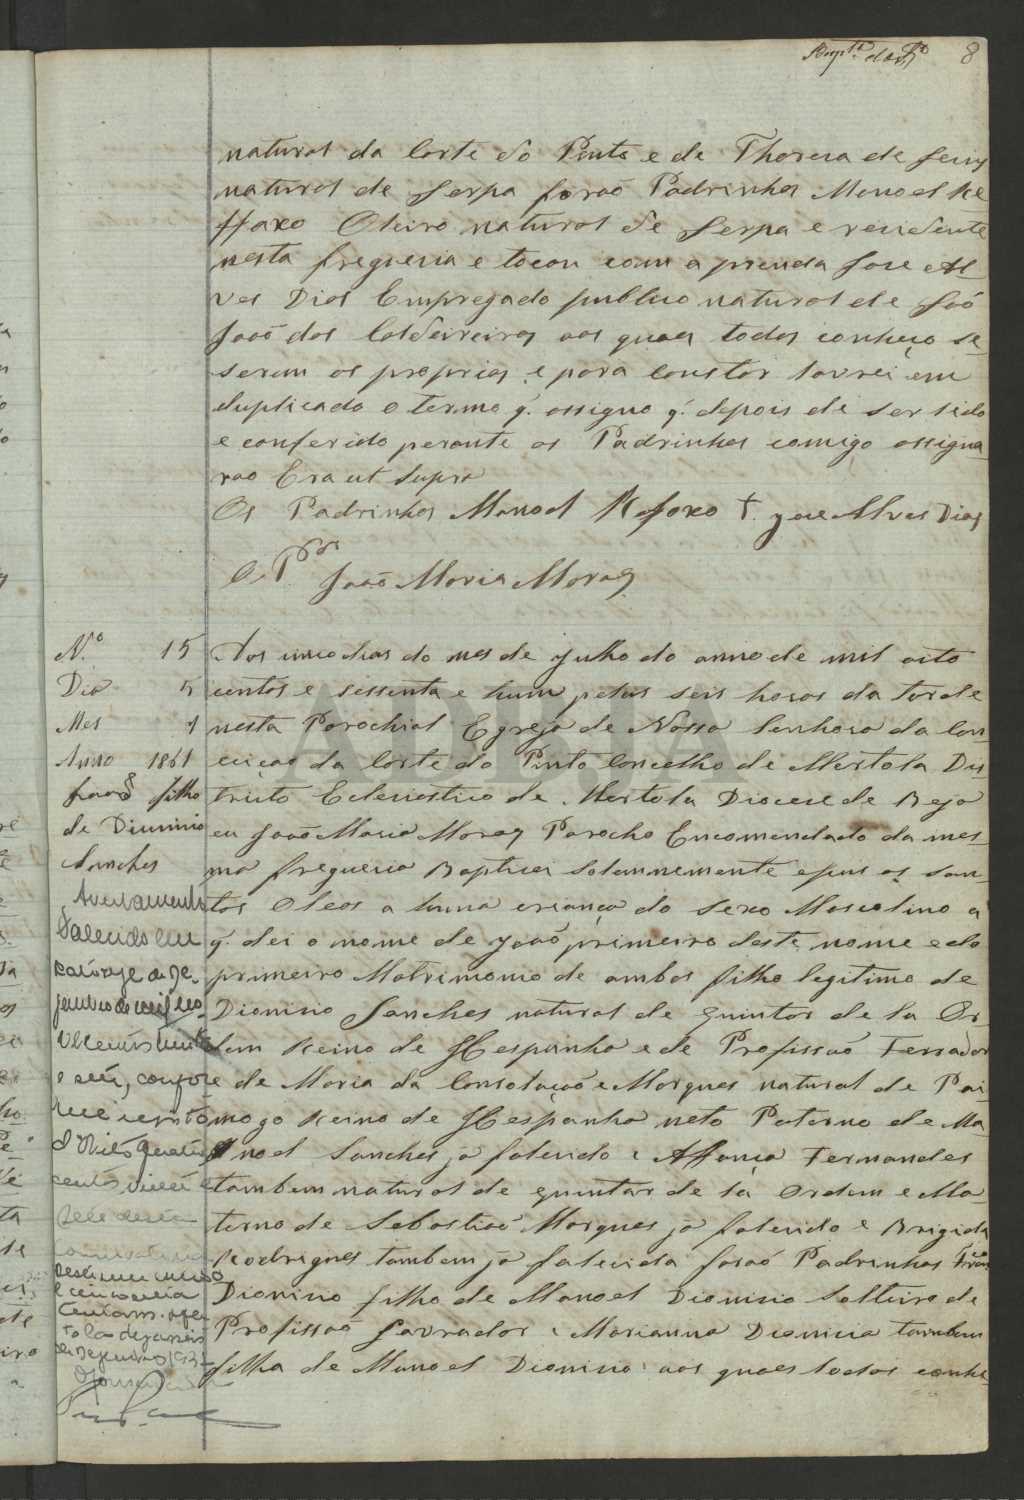 8
natural da Corte do Pinto e de Thereza de Jesus
natural de Serpa forão Padrinhos Manoel Re
ffoxo Oleiro natural de Serpa e rezidente
nesta freguezia e tocou com a prenda Jose Al-
ves Dias Empregado publico natural de São
João dos Caldeireiros aos quaes todos conheço se-
serem os proprios, e para constar lavrei em
duplicado o termo q. assigno q. depois de ser lido
e conferido perante os Padrinhos comigo assigna-
rão Era ut supra
Os Padrinhos Manoel Refoxo †. Jose Alves Dias
O P.
João Maria Moraes
N.º 15
Dia 5
Mes 7
Anno 1861
João filho
de Dionizio
Sanches
Aos cinco dias do mes de Julho do anno de mil oito
centos e sessenta e hum pelas seis horas da tarde
nesta Parochial Egreja de Nossa Senhora da Con-
ceiçao da Corte do Pinto Concelho de Mertola Dis-
tricto Eclesiastico de Mertola Diocese de Beja
eu João Maria Moraes Parocho Encomendado da mes-
ma freguezia Baptizei solemnemente e pus os san-
tos Oleos a huma criança do sexo Mascolino a
q. dei o nome de João primeiro deste nome e do
primeiro Matrimonio de ambos filho legitimo de
Dionizio Sanches natural de Quintos de la Or-
dem Reino de Hespanha e de Profissão Ferrador
e de Maria da Consolação Marques natural de Pai
mogo Reino de Hespanha neto Paterno de Ma-
noel Sanches já falecido e Affonça Fernandes
tambem natural de Quintar de la Ordem e Ma
terno de Sebastião Marques já falecido e Brigida
Rodrigues tambem já falecida forão Padrinhos Fran
Dionizio filho de Manoel Dionizio Solteiro de
Profissão Lavrador e Marianna Dionizia tambem
filha de Manoel Dionizio aos quaes todos conhe-
Averbamento
Falecido em
de De-
zembro de mil no-
vecentos trinta
e seis, confor
me
d'Obito quatro
centos vinte e
sete